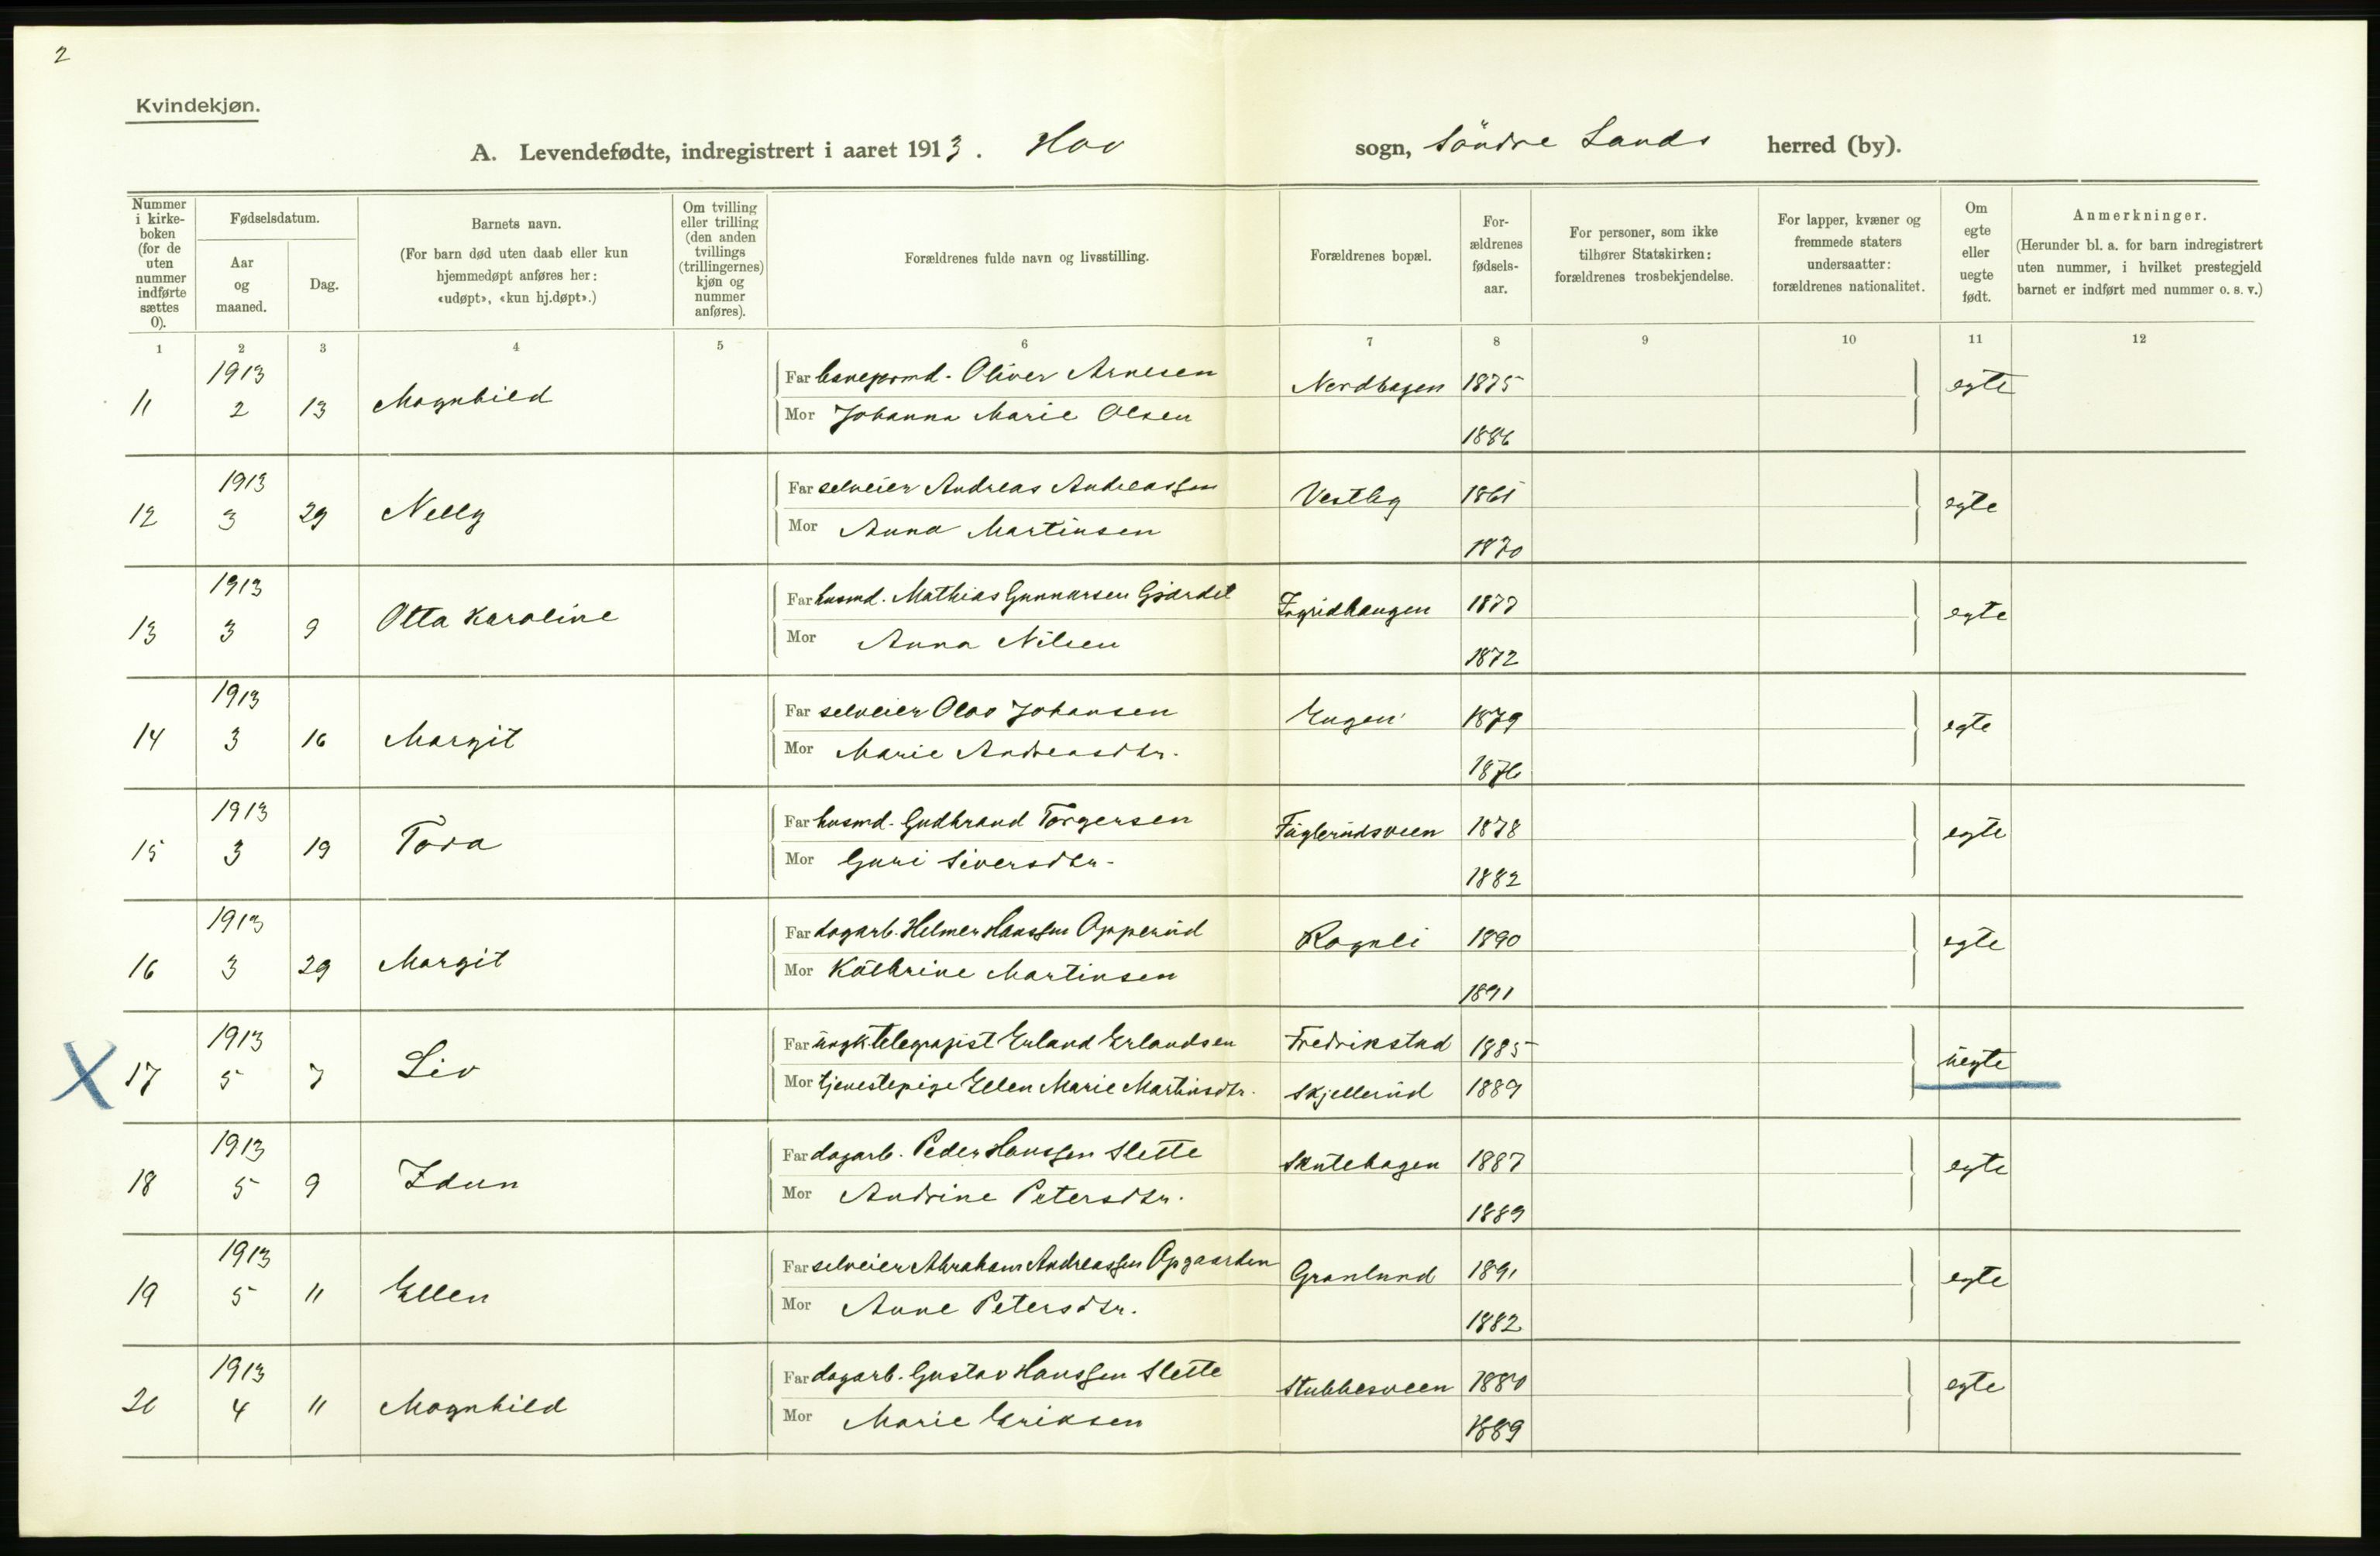 2
Kvindekjøn.
A. Levendefødte, indregistrert i aaret 1913. Hov sogn, Söndre Lands herred (by).
Nummer i kirke-boken (for de uten nummer indførte sættes 0).
Fødselsdatum.
Aar og maaned.
Dag.
Barnets navn.
(For barn død uten daab eller kun hjemmedøpt anføres her: «udøpt», «kun hj.døpt».)
Om tvilling eller trilling (den anden tvillings (trillingernes) kjøn og nummer anføres).
Forældrenes fulde navn og livsstilling.
Forældrenes bopæl.
For-ældrenes fødsels-aar.
For personer, som ikke tilhører Statskirken: forældrenes trosbekjendelse.
For lapper, kvæner og fremmede staters undersaatter: forældrenes nationalitet.
Om egte eller uegte født.
Anmerkninger.
(Herunder bl. a. for barn indregistrert uten nummer, i hvilket prestegjeld barnet er indført med nummer o. s. v.)
1 2 3 4 5 6 7 8 9 10 11 12
1913 Far Oliver Arnesen Nordhagen 1875 egte
11 2 13 Magnhild Mor Johanna Marie Olsen
1886
1913 Far selveier Andreas Andreassen Vestby 1861 egte
12 3 29 Nelly Mor Anna Martinsen
1870
1913 Far husmd. Mathias Gunnarsen Gjærdet Ingridhaugen 1877 egte
13 3 9 Otta Karoline Mor Anna Nilsen
1872
1913 Far selveier Olav Johansen Engen 1879 egte
14 3 16 Margit Mor Marie Andreasdtr.
1876
1913 Far husmd. Gudbrand Torgersen Fuglerudsveen 1878 egte
15 3 19 Tora Mor Guri Siversdtr.
1882
1913 Far dagarb. Helmer Hanssen Opperud Rognli 1890 egte
16 3 29 Margit Mor Kathrine Martinsen
1891
1913 Far ungk. telegrafist Erland Erlandsen Fredrikstad 1885 uegte
X 17 5 7 Liv Mor tjenestepige Ellen Marie Martinsdtr. Skjellerud 1889
1913 Far dagarb. Peder Hanssen Slette Skutehagen 1887 egte
18 5 9 Idun Mor Andrine Petersdtr.
1889
1913 Far selveier Abraham Andreassen Opgaarden Granlund 1891 egte
19 5 11 Ellen Mor Anne Petersdtr.
1882
1913 Far dagarb. Gustav Hanssen Slette Stubbesveen 1880 egte
20 4 11 Magnhild Mor Marie Eriksen
1889